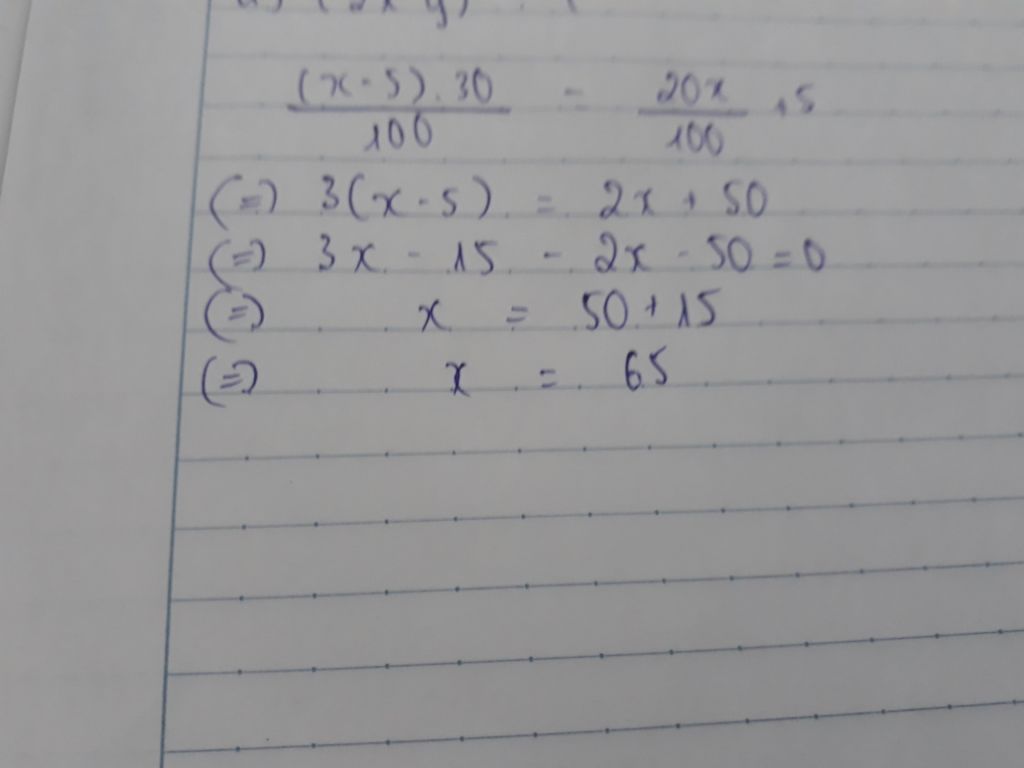 (x - 5).30 / 100 = 20x / 100 + 5
(=) 3(x - 5) = 2x + 50
(=) 3x - 15 - 2x - 50 = 0
(=) x = 50 + 15
(=) x = 65